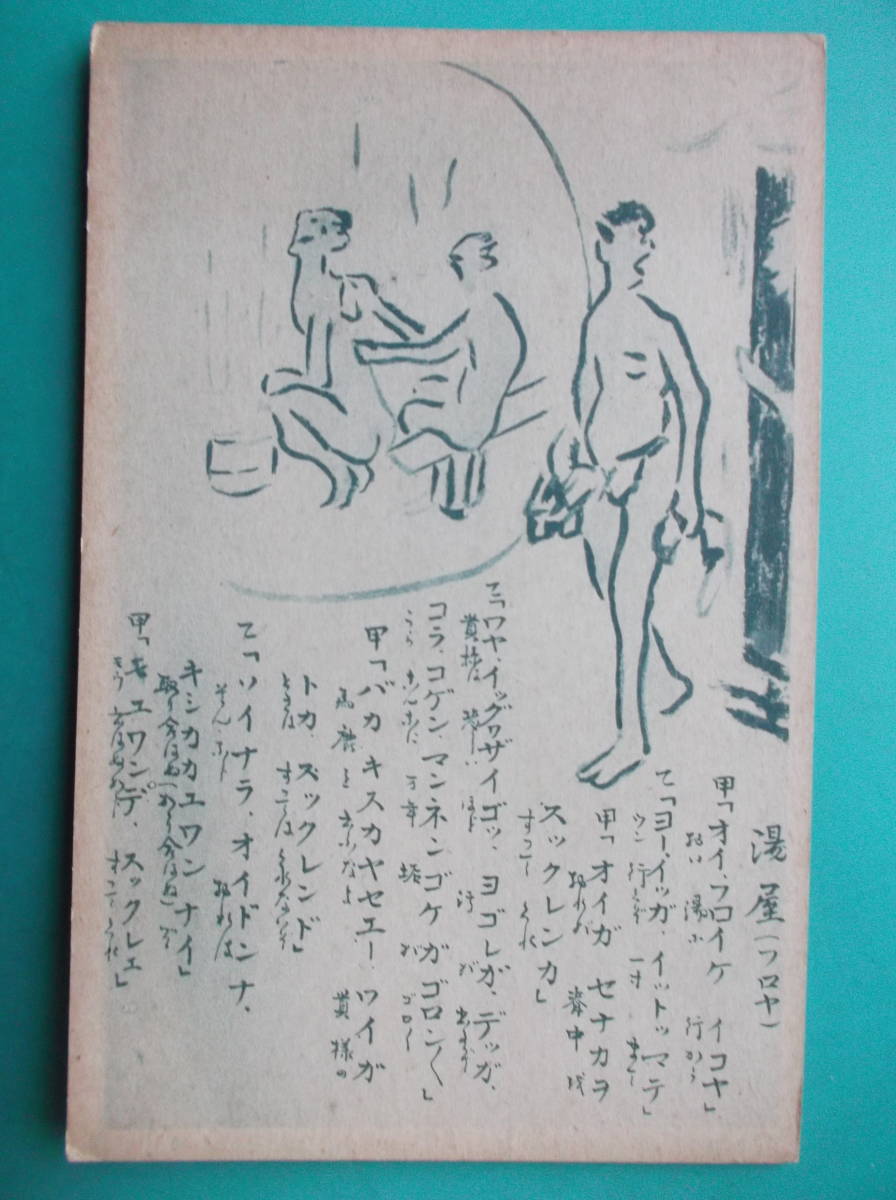 湯屋(フロヤ)
甲「オイ、フロイケ イコヤ」
おい 湯に 行かう
乙「ヨー、イッガ、イットッマテ」
ウン 行くぞ 一寸 まて
甲「オイガ セナカヲ
おれが 脊中を
スックレンカ」
すつてくれ
乙「ワヤ、イッグヮザイゴッ、ヨゴレガ、デッガ、
貴様は 恐しい ほど 汚が 出るぞ
コラ、コゲン、マンネンゴケガゴロン〱」
こら こんなに 万年 垢が ゴロ〱
甲「バカ、キスカヤセエー、ワイガ
馬鹿を 貴様の
トカ、スックレンド」
ときは すつてはくれないぞ
乙「ソイナラ、オイドンナ、
そんなら おれは
キシカカエワンナイ」
取り合はぬ
甲「モエワンデ、スックレエ」
モウ 云はぬから すつてくれ